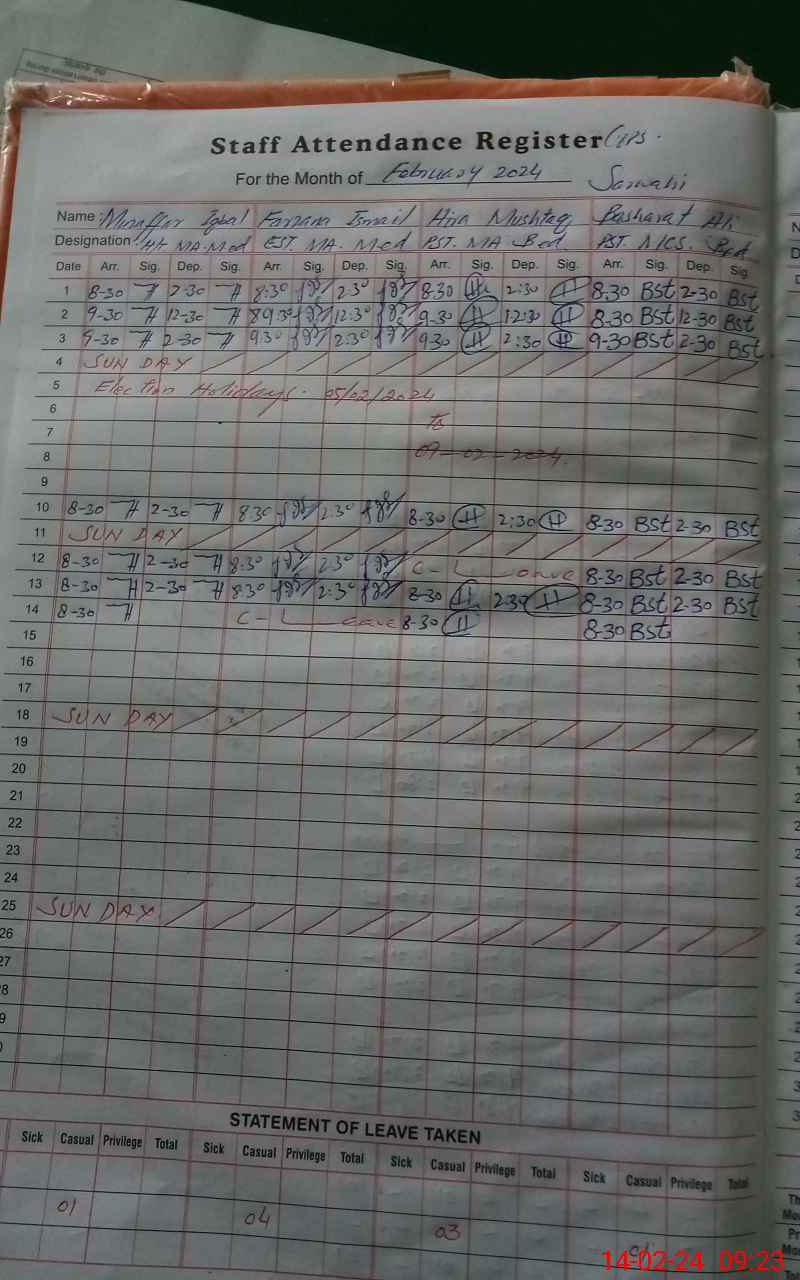 Staff Attendance Register
For the Month of February 2024 Sarwahi
Name: Iqbal Farzana Ismail Hira Mushtaq Basharat Ali
Designation: MA. Med EST. MA. Med PST. MA Bed PST. MCS. Bed
Date Arr. Sig. Dep. Sig. Arr. Sig. Dep. Sig. Arr. Sig. Dep. Sig. Arr. Sig. Dep. Sig.
1 8-30 2-30 8:30 2:30 8.30 H 2:30 H 8.30 Bst 2-30 Bst
2 9-30 12-30 9.30 12:30 9-30 H 12:30 H 8.30 Bst 12-30 Bst
3 9-30 2-30 9.30 2:30 930 H 2:30 H 9-30 Bst 2-30 Bst
4 SUN DAY
5 Election Holidays. 05/02/2024
6
7 To
8 09-02-2024.
9
10 8-30 2-30 8.30 2:30 8-30 H 2:30 H 8-30 Bst 2-30 Bst
11 SUN DAY
12 8-30 2-30 8:30 2:30 C-Leave 8-30 Bst 2-30 Bst
13 8-30 2-30 8.30 2:30 8-30 H 2:30 H 8-30 Bst 2-30 Bst
14 8-30 C-Leave 8-30 H 8-30 Bst
15
16
17
18 SUN DAY
19
20
21
22
23
24
25 SUN DAY
26
27
28
STATEMENT OF LEAVE TAKEN
Sick Casual Privilege Total Sick Casual Privilege Total Sick Casual Privilege Total Sick Casual Privilege Total
01 04 03
14-02-24 09:23